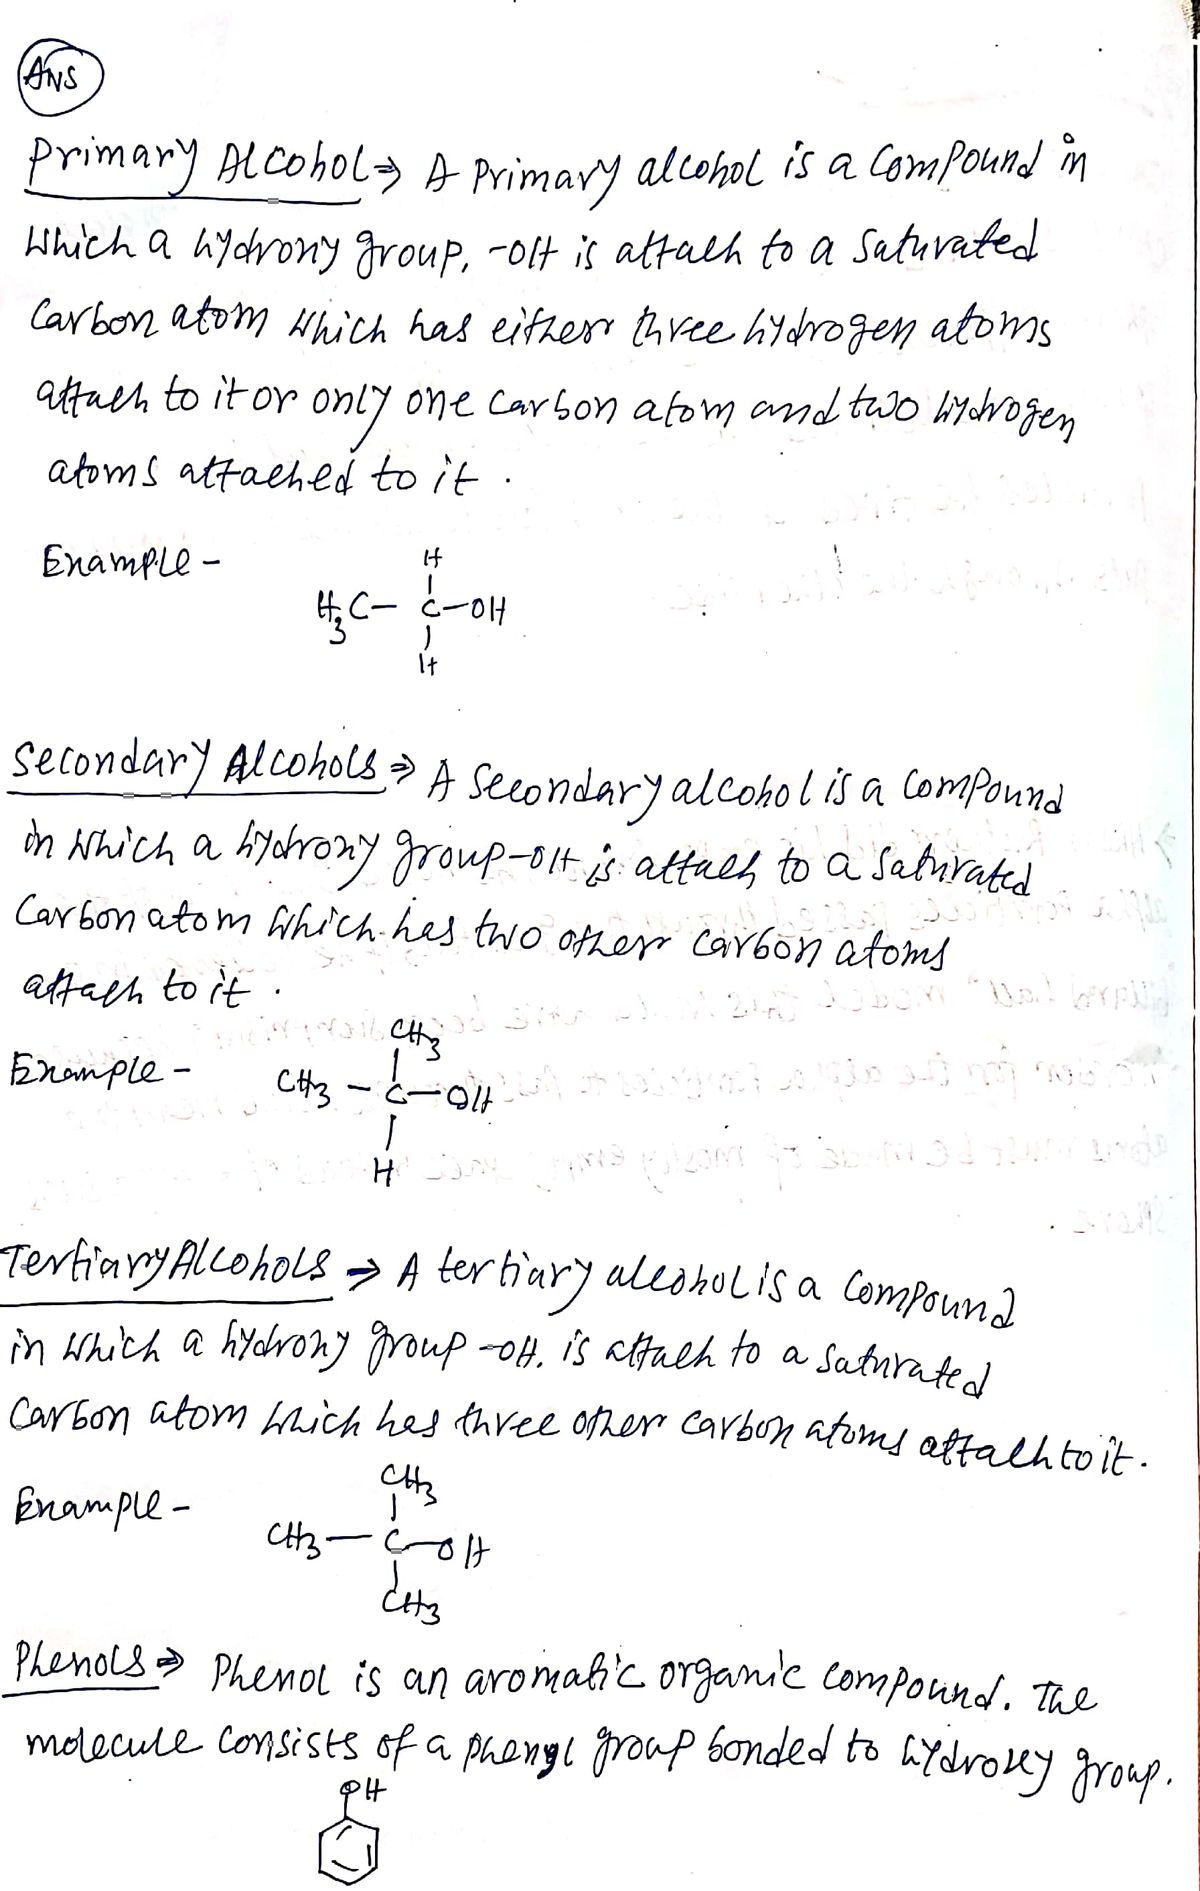 ANS
Primary Alcohol ⇒ A Primary alcohol is a Compound in
which a hydroxy group, -OH is attach to a saturated
Carbon atom which has either three hydrogen atoms
attach to it or only one carbon atom and two hydrogen
atoms attached to it.
Example -
H
H3C - C - OH
H
Secondary Alcohols ⇒ A Secondary alcohol is a Compound
in which a hydroxy group -OH is attach to a saturated
Carbon atom which has two other carbon atoms
attach to it.
CH3
Example - CH3 - C - OH
H
Tertiary Alcohols ⇒ A tertiary alcohol is a Compound
in which a hydroxy group -OH. is attach to a saturated
Carbon atom which has three other carbon atoms attach to it.
CH3
Example - CH3 - C - OH
CH3
Phenols ⇒ Phenol is an aromatic organic compound. The
molecule consists of a phenyl group bonded to hydroxy group.
OH